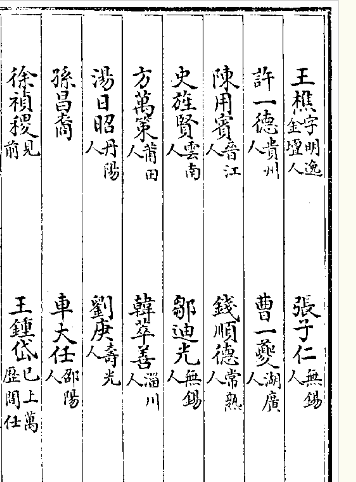 王樵字明逸金壇人 張子仁無錫人
許一德貴州人 曹一夔湖廣人
陳用賓晉江人 錢順德常熟人
史旌賢雲南人 鄒迪光無錫人
方萬策莆田人 韓萃善淄川人
湯日昭丹陽人 劉庚壽光人
孫昌裔 車大任邵陽人
徐禎稷見前 王鍾岱已上萬歷間任